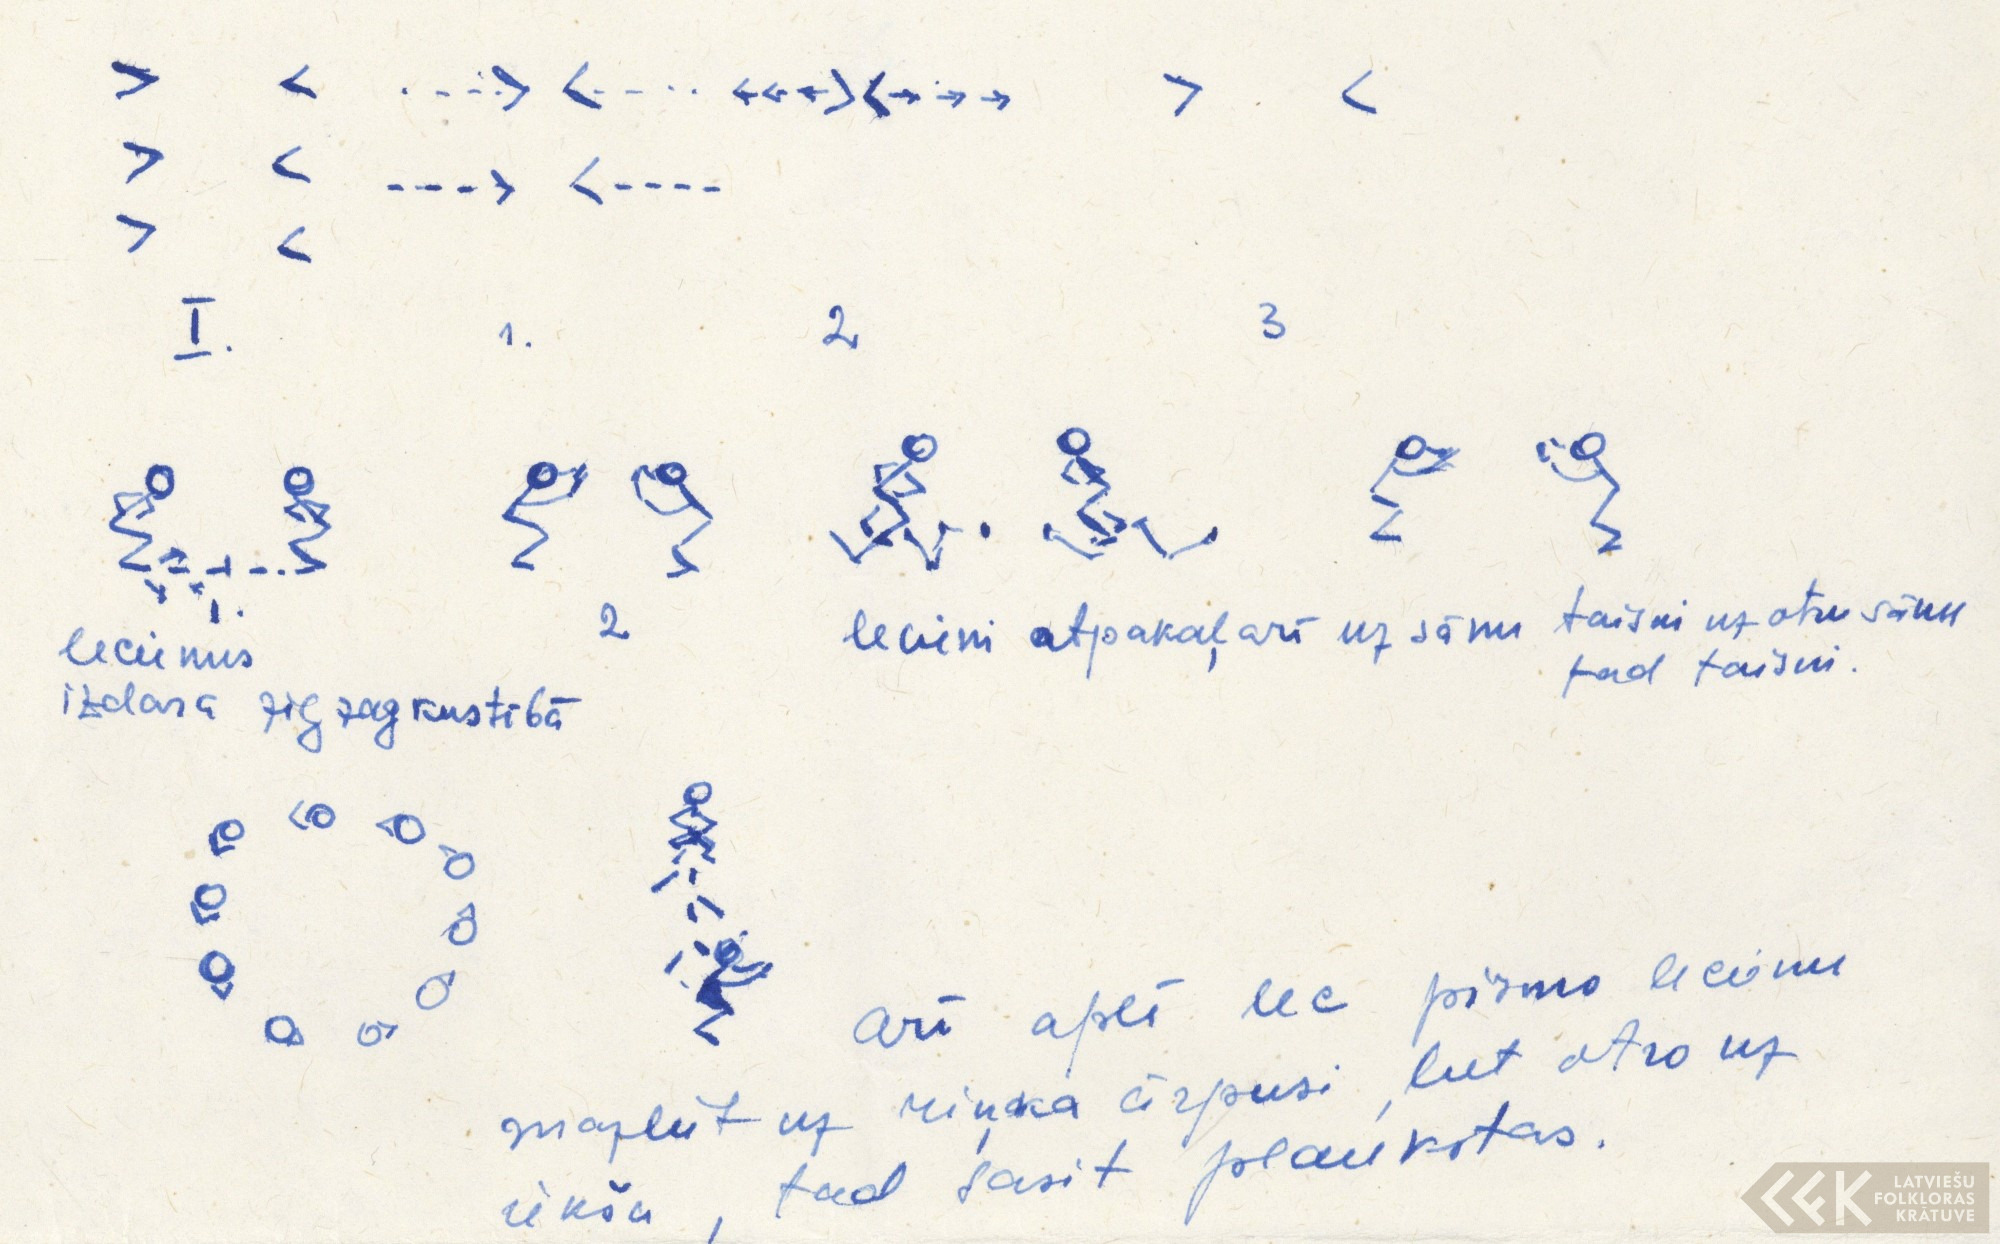 I. 1. 2 3
1. 2
lecienus
izdara zigzagkustībā
lecieni atpakaļ arī uz sānu taisni uz otru sānu
tad taisni.
arī aplī lec pirmo lecienu
mazliet uz riņķa ārpusi, bet otro uz
iekšu, tad sasit plaukstas.
LATVIEŠU
FOLKLORAS
KRĀTUVE